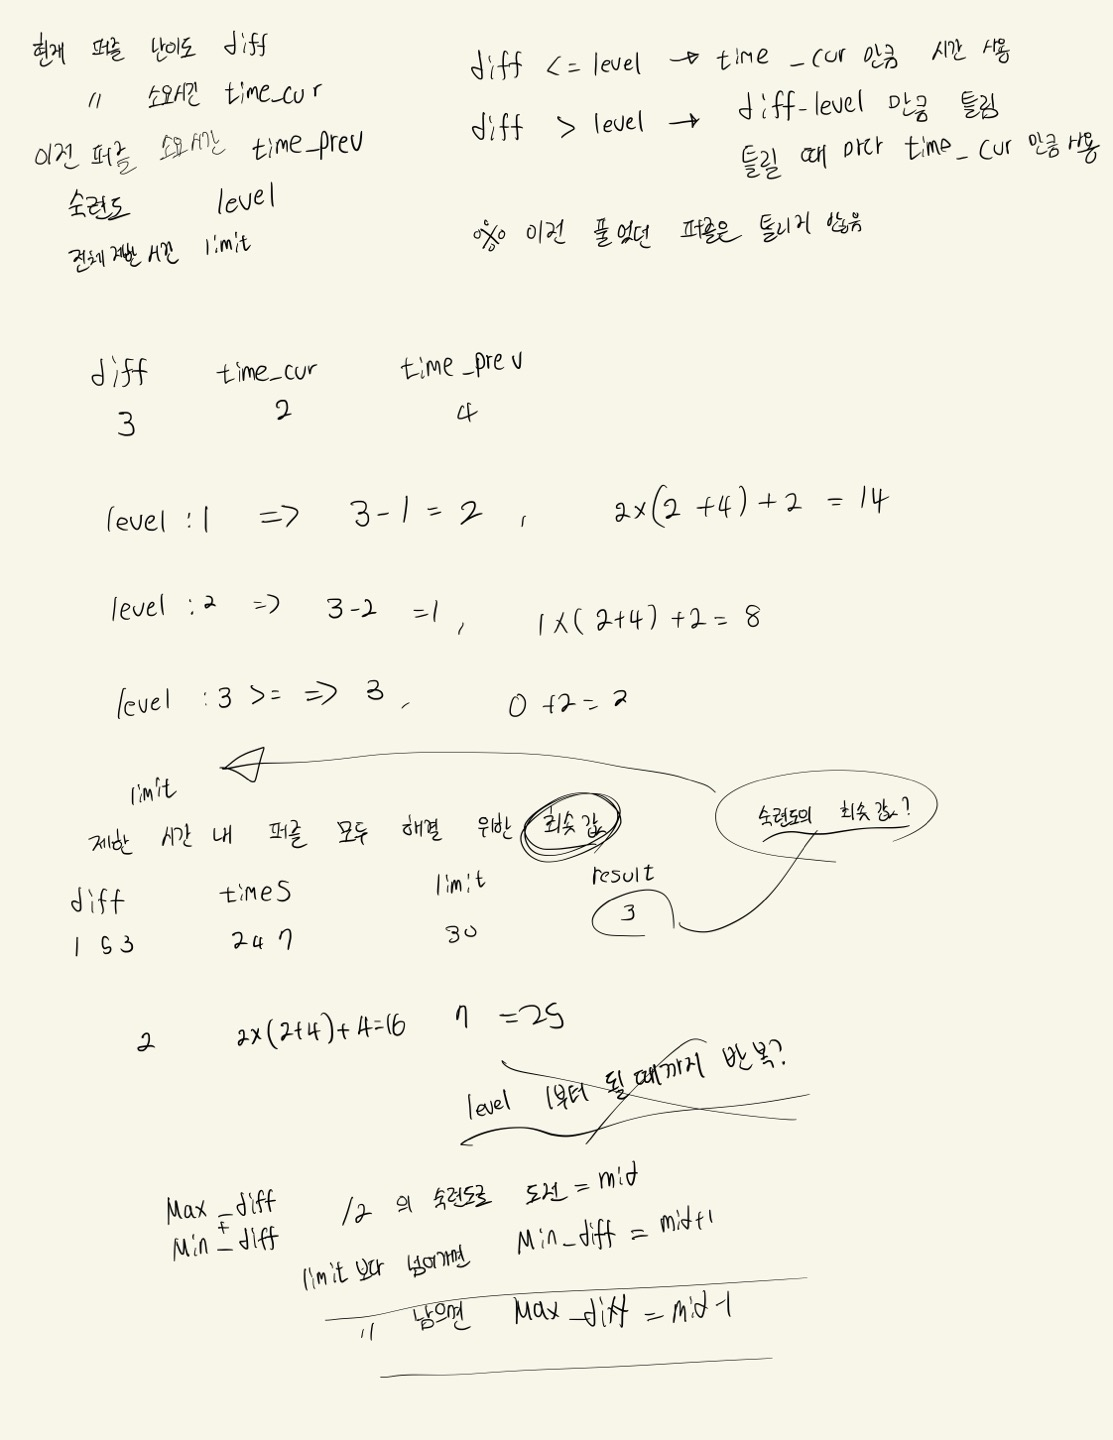 현재 퍼즐 난이도 diff
〃 소요시간 time_cur
이전 퍼즐 소요시간 time_prev
숙련도 level
전체 제한 시간 limit
diff <= level → time_cur 만큼 시간 사용
diff > level → diff-level 만큼 틀림
틀릴 때 마다 time_cur 만큼 사용
※ 이전 풀었던 퍼즐은 틀리지 않음
diff time_cur time_prev
3 2 4
level : 1 => 3-1 = 2 , 2x(2+4)+2 = 14
level : 2 => 3-2 =1 , 1x(2+4)+2 = 8
level : 3 >= => 3 , 0 +2 = 2
limit
제한 시간 내 퍼즐 모두 해결 위한 최솟값
숙련도의 최솟값?
diff times limit result
1 5 3 2 4 7 30 3
2 2x(2+4)+4=16 7 =25
level 1부터 될 때까지 반복?
Max_diff + Min_diff /2 의 숙련도로 도전 = mid
limit 보다 넘어가면 Min_diff = mid+1
〃 남으면 Max_diff = mid-1